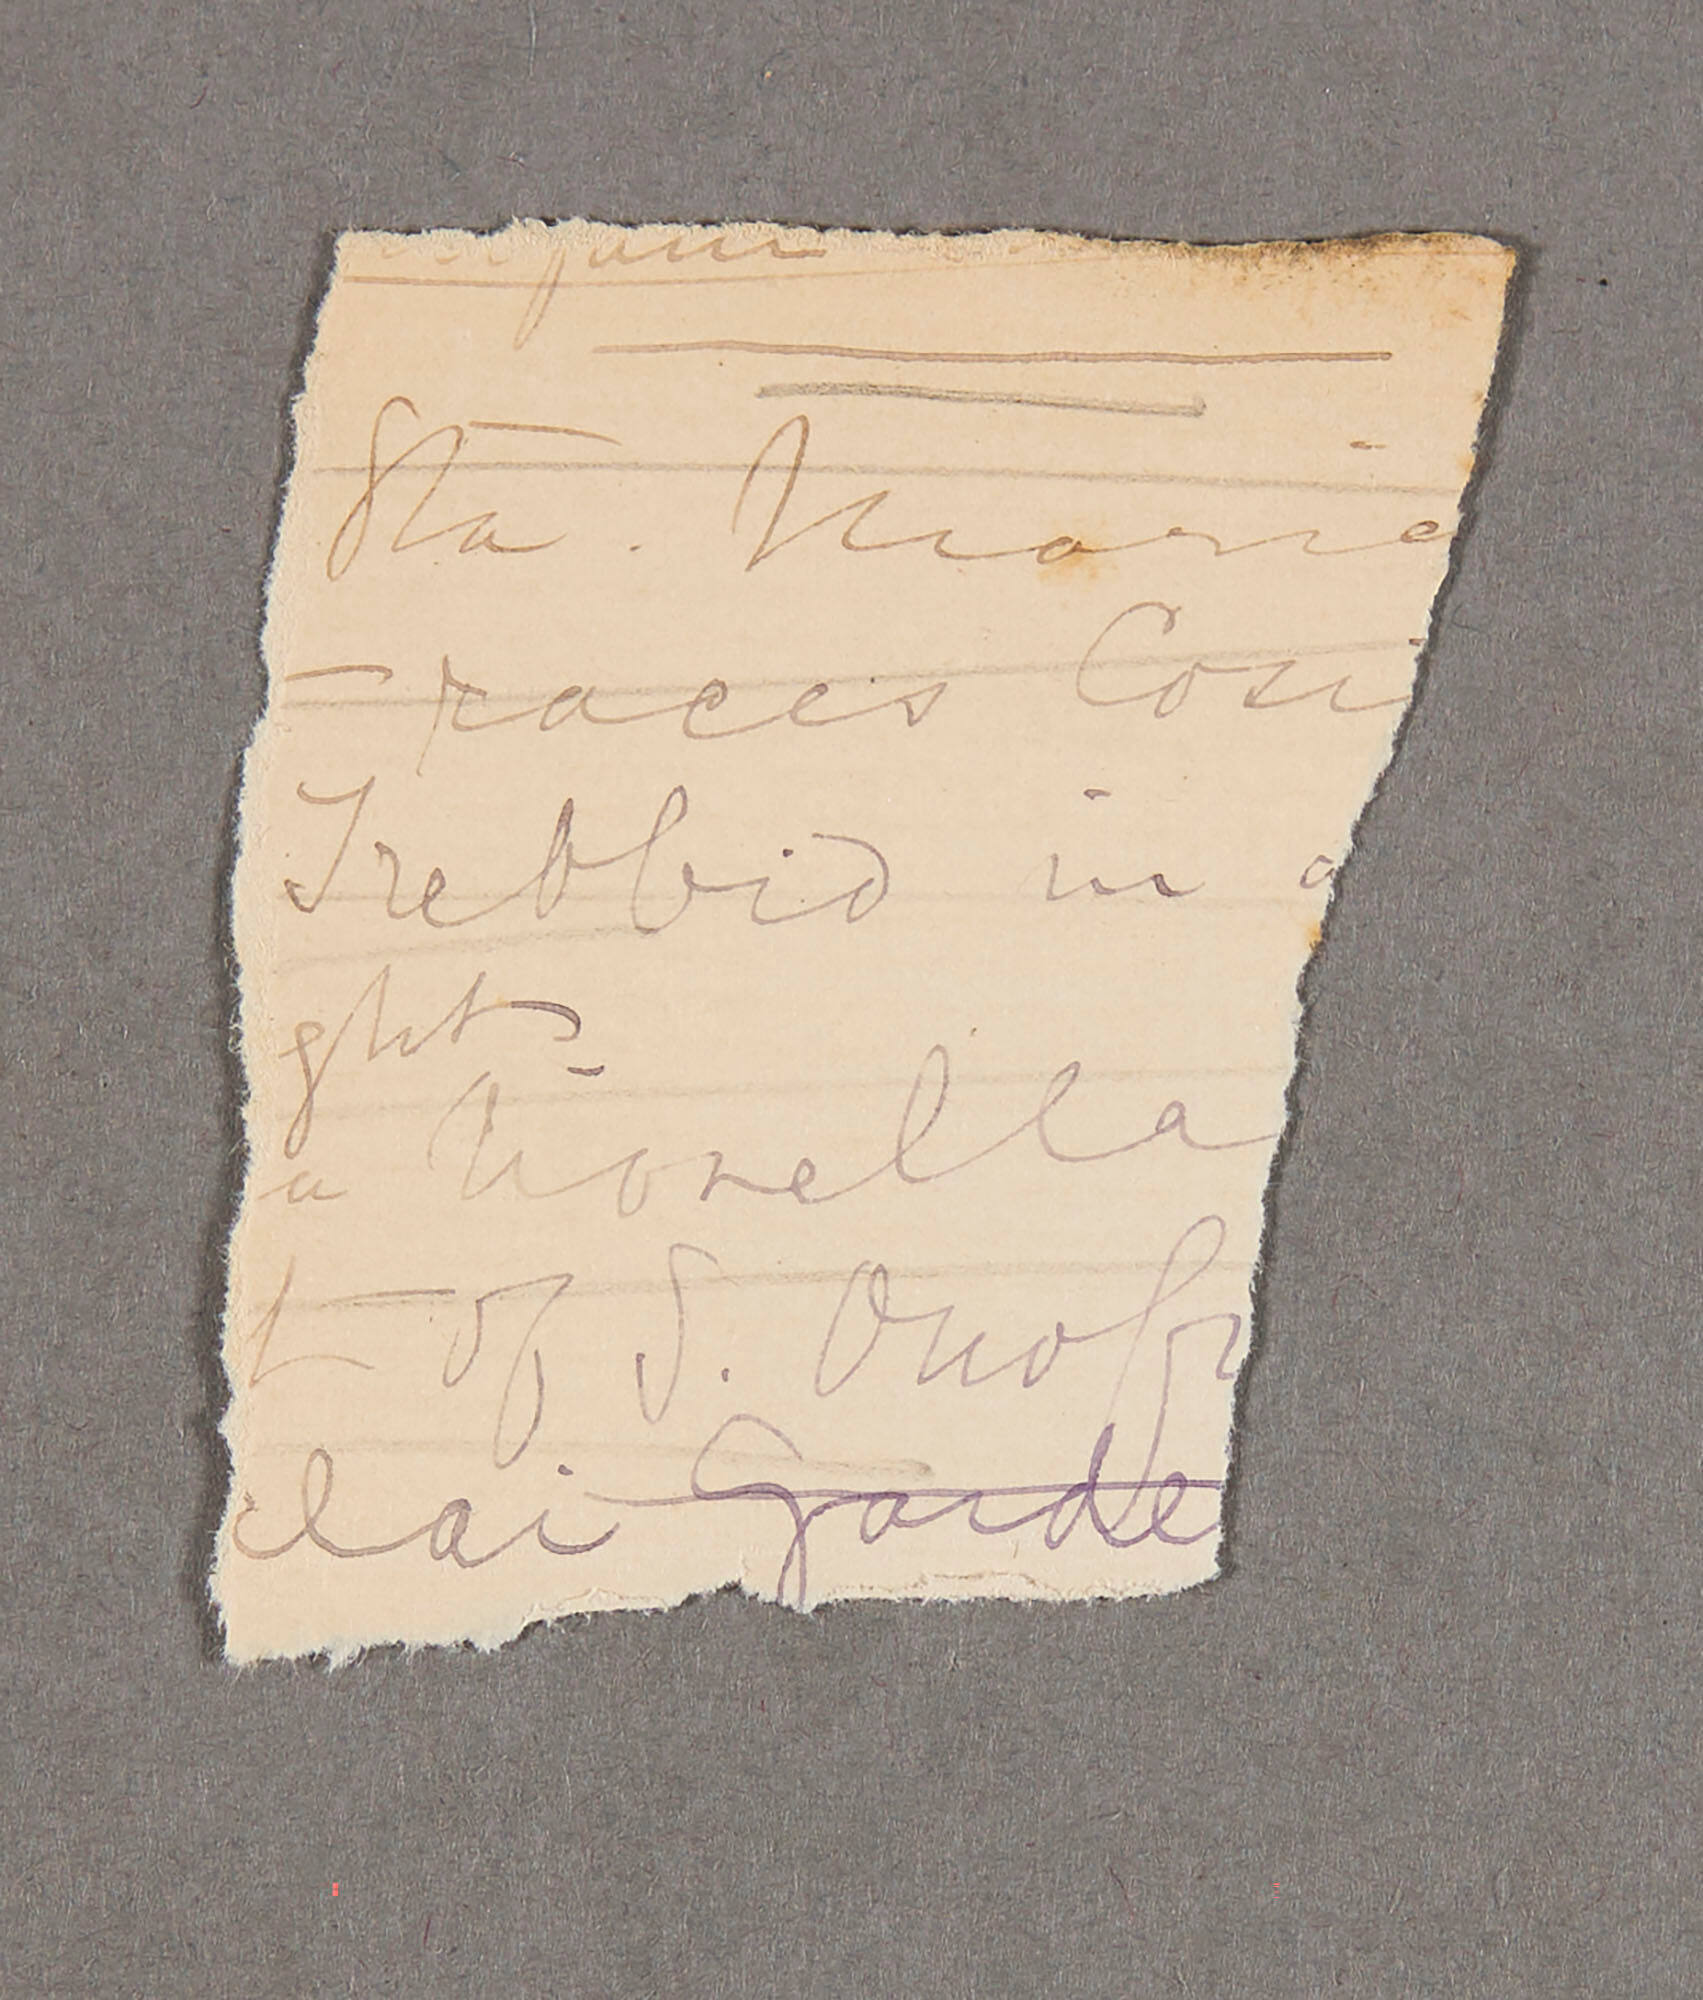 Sta. Marie
races Cosi
Trebbio in a
ghts
a Novella
t of S. Onofr
lai Garde